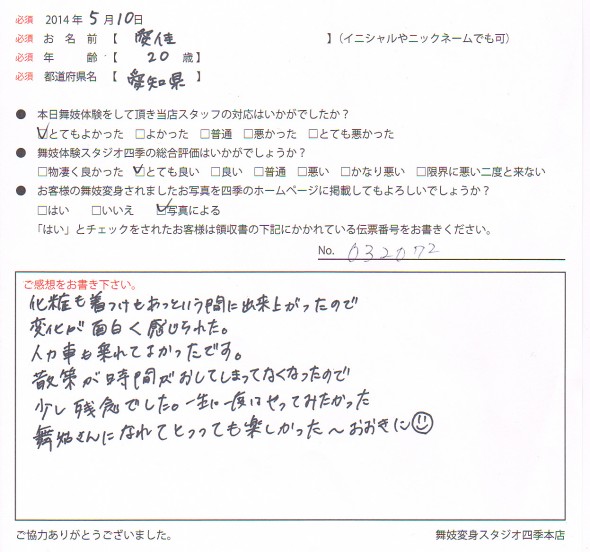 必須 2014年 5月10日
必須 お名前【 愛佳 】(イニシャルやニックネームでも可)
必須 年齢【 20歳】
必須 都道府県名【 愛知県 】
● 本日舞妓体験をして頂き当店スタッフの対応はいかがでしたか？
☑とてもよかった □よかった □普通 □悪かった □とても悪かった
● 舞妓体験スタジオ四季の総合評価はいかがでしょうか？
□物凄く良かった ☑とても良い □良い □普通 □悪い □かなり悪い □限界に悪い二度と来ない
● お客様の舞妓変身されましたお写真を四季のホームページに掲載してもよろしいでしょうか？
□はい □いいえ ☑写真による
「はい」とチェックをされたお客様は領収書の下記にかかれている伝票番号をお書きください。
No. 032072
ご感想をお書き下さい。
化粧も着つけもあっという間に出来上がったので
変化が面白く感じられた。
人力車も乗れてよかったです。
散策が時間がおしてしまってなくなったので
少し残念でした。一生に一度はやってみたかった
舞妓さんになれてとっっても楽しかった〜おおきに☺
ご協力ありがとうございました。
舞妓変身スタジオ四季本店